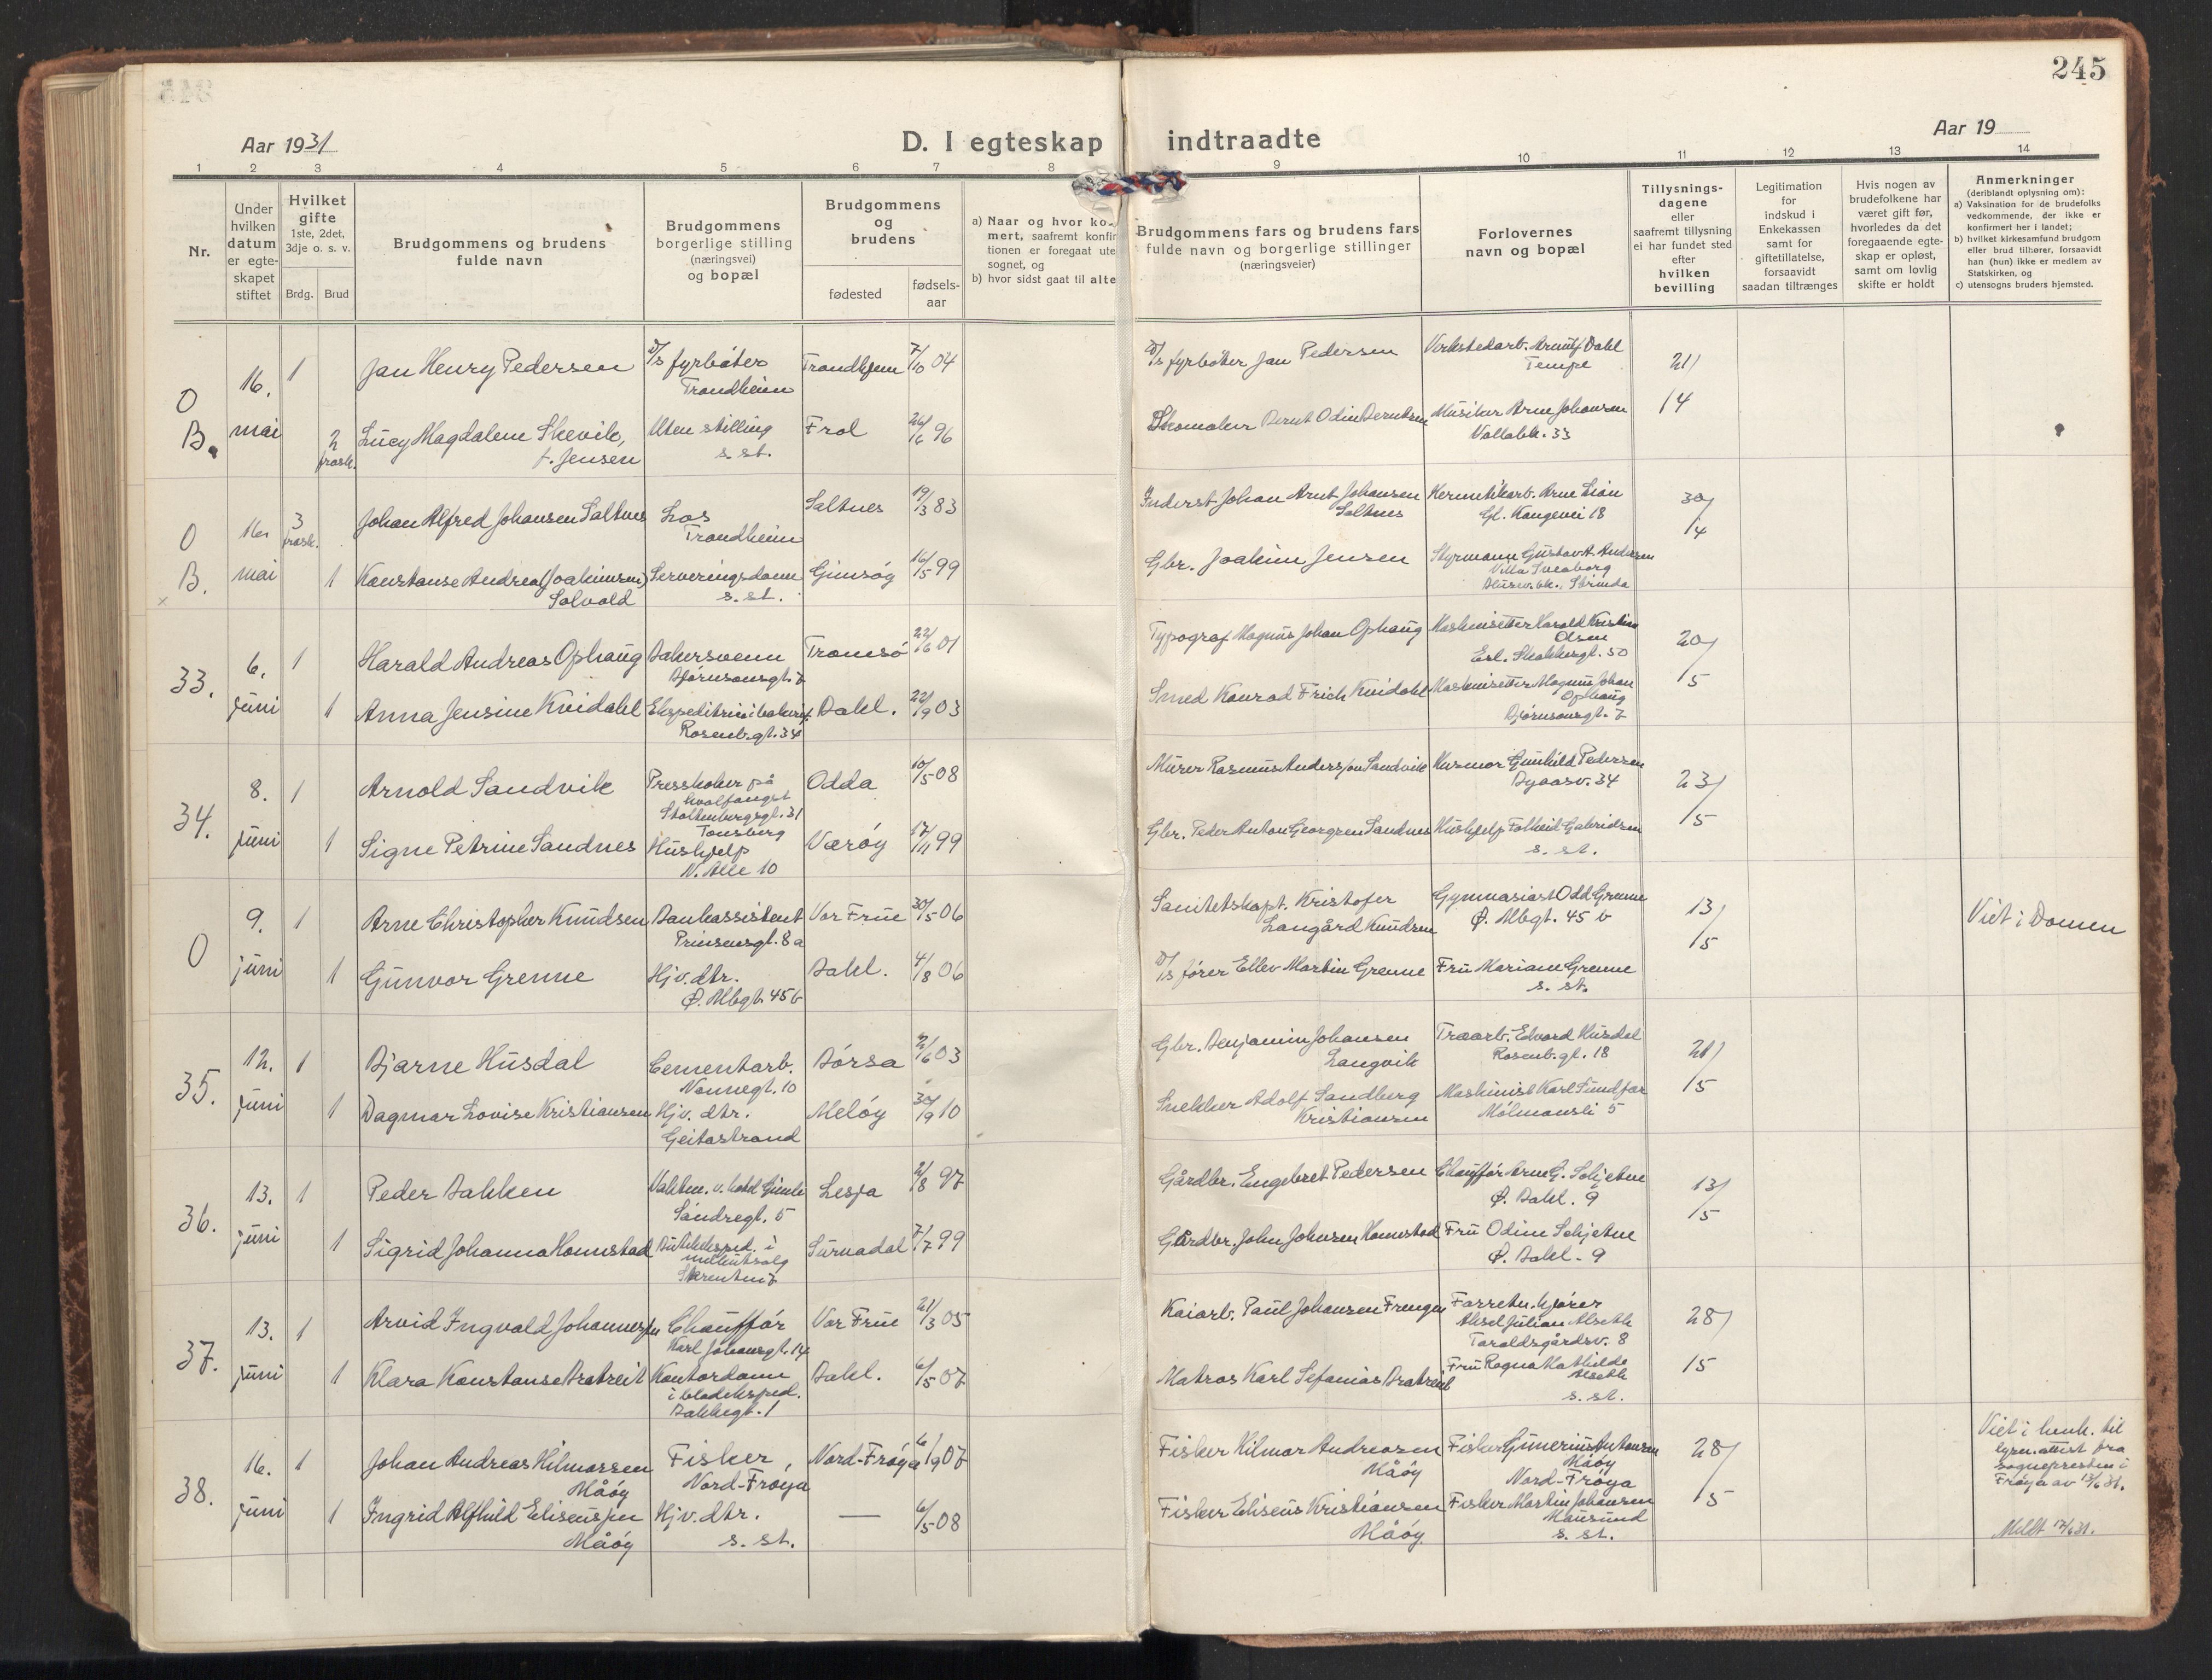 245
Aar 1931
D. I egteskap indtraadte
Aar 19
1 2 3 4 5 6 7 8 9 10 11 12 13 14
Nr.
Under
hvilken
datum
er egte-
skapet
stiftet
Hvilket
gifte
1ste, 2det,
3dje o. s. v.
Brdg. Brud
Brudgommens og brudens
fulde navn
Brudgommens
borgerlige stilling
(næringsvei)
og bopæl
Brudgommens
og
brudens
fødested
fødsels-
aar
a) Naar og hvor ko
mert, saafremt konfir
tionen er foregaat ute
sognet, og
b) hvor sidst gaat til alte
Brudgommens fars og brudens fars
fulde navn og borgerlige stillinger
(næringsveier)
Forlovernes
navn og bopæl
Tillysnings-
dagene
eller
saafremt tillysning
ei har fundet sted
efter
hvilken
bevilling
Legitimation
for
indskud i
Enkekassen
samt for
giftetillatelse,
forsaavidt
saadan tiltrænges
Hvis nogen av
brudefolkene har
været gift før,
hvorledes da det
foregaaende egte-
skap er opløst,
samt om lovlig
skifte er holdt
Anmerkninger
(deriblandt oplysning om):
a) Vaksination for de brudefolks
vedkommende, der ikke er
konfirmert her i landet;
b) hvilket kirkesamfund brudgom
eller brud tilhører, forsaavidt
han (hun) ikke er medlem av
Statskirken, og
c) utensogns bruders hjemsted.
O
B.
16.
mai
1
Jan Henry Pedersen
D/S fyrbøter
Trondheim
Trondhjem
7/10 04
D/S fyrbøter Jan Pedersen
Verkstedarb. Arnulf Dahl
Tempe
21/
14
2
frask.
Lucy Magdalene Skevik,
f. Jensen
Uten stilling
s. st.
Frol
26/6 96
Skomaker Bernt Odin Berntsen
Musiker Arne Johansen
Vollabk. 33
O
B.
16.
mai
3
frask.
Johan Alfred Johansen Saltnes
Los
Trondheim
Saltnes
19/3 83
Inderst Johan Arnt Johansen
Saltnes
Hermetikarb. Arne Lian
Gl. Kongevei 18
30/
/4
1
Konstanse Andrea (Joakimsen)
Solvold
Serveringsdame
s. st.
Gimsøy
16/5 99
Gbr. Joakim Jensen
Styrmann Gustav A. Andersen
Villa Sveaborg
Strinda
33.
6.
juni
1
Harald Andreas Ophaug
Bakersvenn
Bjørnsonsgt. 7
Tromsø
22/6 01
Typograf Magnus Johan Ophaug
Maskinsetter Harald Kristian
Olsen
Erl. Skakkesgt. 50
20/
/5
1
Anna Jensine Kvidahl
Ekspeditrise i bakerif.
Rosenb.gt. 34
Bakl.
22/9 03
Smed Konrad Frich Kvidahl
Maskinsetter Magnus Johan
Ophaug
Bjørnsonsgt. 7
34.
8.
juni
1
Arnold Sandvik
Presskoker på
hvalfangst
Stoltenbergsgt. 31
Tønsberg
Odda
10/5 08
Murer Rasmus Anderssen Sandvik
Husmor Gunhild Pedersen
Byaasv. 34
23/
/5
1
Signe Petrine Sandnes
Hushjelp
N. Alle 10
Værøy
17/11 99
Gbr. Peder Anton Georgsen Sandnes
Hushjelp Gabrielsen
s. st.
O
9.
juni
1
Arne Christopher Knudsen
Bankassistent
Prinsensgt. 8a
Vor Frue
30/5 06
Sanitetskapt. Kristofer
Langård Knudsen
Gymnasiast Odd Grenne
Ø. Mbgt. 45 b
13/
/5
Viet i Domen
1
Gunvor Grenne
Hjv. dtr.
Ø. Mbgt. 45 b
Bakl.
4/8 06
D/S fører Ellev Martin Grenne
Fru Mariane Grenne
s. st.
35.
12.
juni
1
Bjarne Husdal
Cementarb.
Nonnegt. 10
Børsa
2/6 03
Gbr. Benjamin Johansen
Langvik
Traarb. Edvard Husdal
Rosenb.gt. 18
21/
/5
1
Dagmar Lovise Kristiansen
Hjv. dtr.
Geitastrand
Meløy
30/9 10
Snekker Adolf Sandberg
Kristiansen
Maskinist Karl Sundfær
Mølmansli 5
36.
13.
juni
1
Peder Bakken
Vaktm. v. hotel Gimle
Søndregt. 5
Lesja
2/8 97
Gårdbr. Engebret Pedersen
Chauffør Arne G. Schjetne
Ø. Bakl. 9
13/
/5
1
Sigrid Johanna Honnstad
Butikeksped. i
melkutsalg
Surnadal
7/7 99
Gårdbr. John Johnsen Honnstad
Fru Odine Schjetne
Ø. Bakl. 9
37.
13.
juni
1
Arvid Ingvald Johannessen
Chauffør
Karl Johansgt. 14
Vor Frue
21/3 05
Kaiarb. Paul Johansen Frengen
Forretn.kjører
Aksel Julian Alseth
Taraldsgårdsv. 8
28/
15
1
Klara Konstanse Bratreit
Kontordame
i bladeksped.
Bakkegt. 1
Bakl.
6/5 07
Matros Karl Sefanias Bratreit
Fru Ragna Mathilde
Alseth
s. st.
38.
16.
juni
1
Johan Andreas Hilmarsen
Måøy
Fisker
Nord-Frøya
Nord-Frøya
6/9 07
Fisker Hilmar Andreasen
Måøy
Fisker Gunerius Antonsen
Måøy
Nord-Frøya
28/
15
Viet i henh. til
lysn.attest fra
sognepresten i
Frøya av 13/6 31.
1
Ingrid Alfhild Eliseussen
Måøy
Hjv. dtr.
s. st.
—
6/5 08
Fisker Eliseus Kristiansen
Måøy
Fisker Martin Johansen
Mausund
s. st.
Meldt 17/6 31.